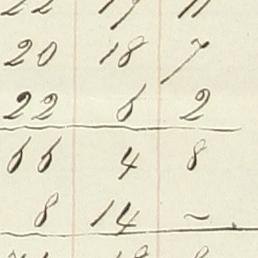 22 19 11
20 18 7
22 6 2
66 4 8
8 14 ~